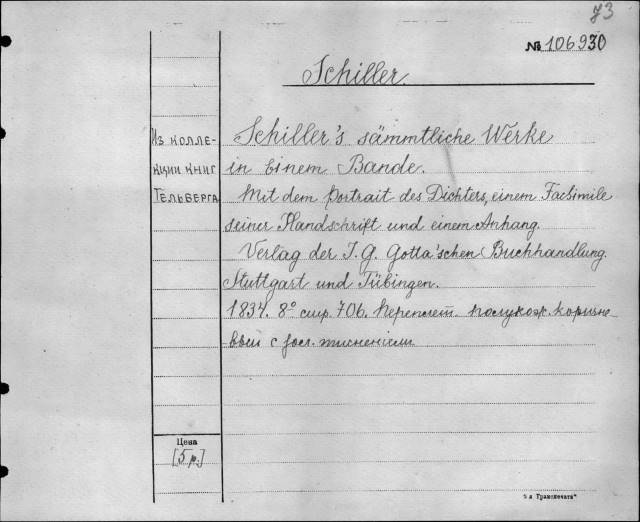 73
№ 106930
Schiller.
Из колле-
кции книг
Тельберга
Schiller's sämmtliche Werke
in Einem Bande.
Mit dem Portrait des Dichters, einem Facsimile
seiner Handschrift und einem Anhang.
Verlag der J. G. Cotta'schen Buchhandlung.
Stuttgart und Tübingen.
1834. 8° стр. 706. Переплет полукож. коричне-
вый с зол. тиснением
Цена
[5 р.]
"я Транспечать"